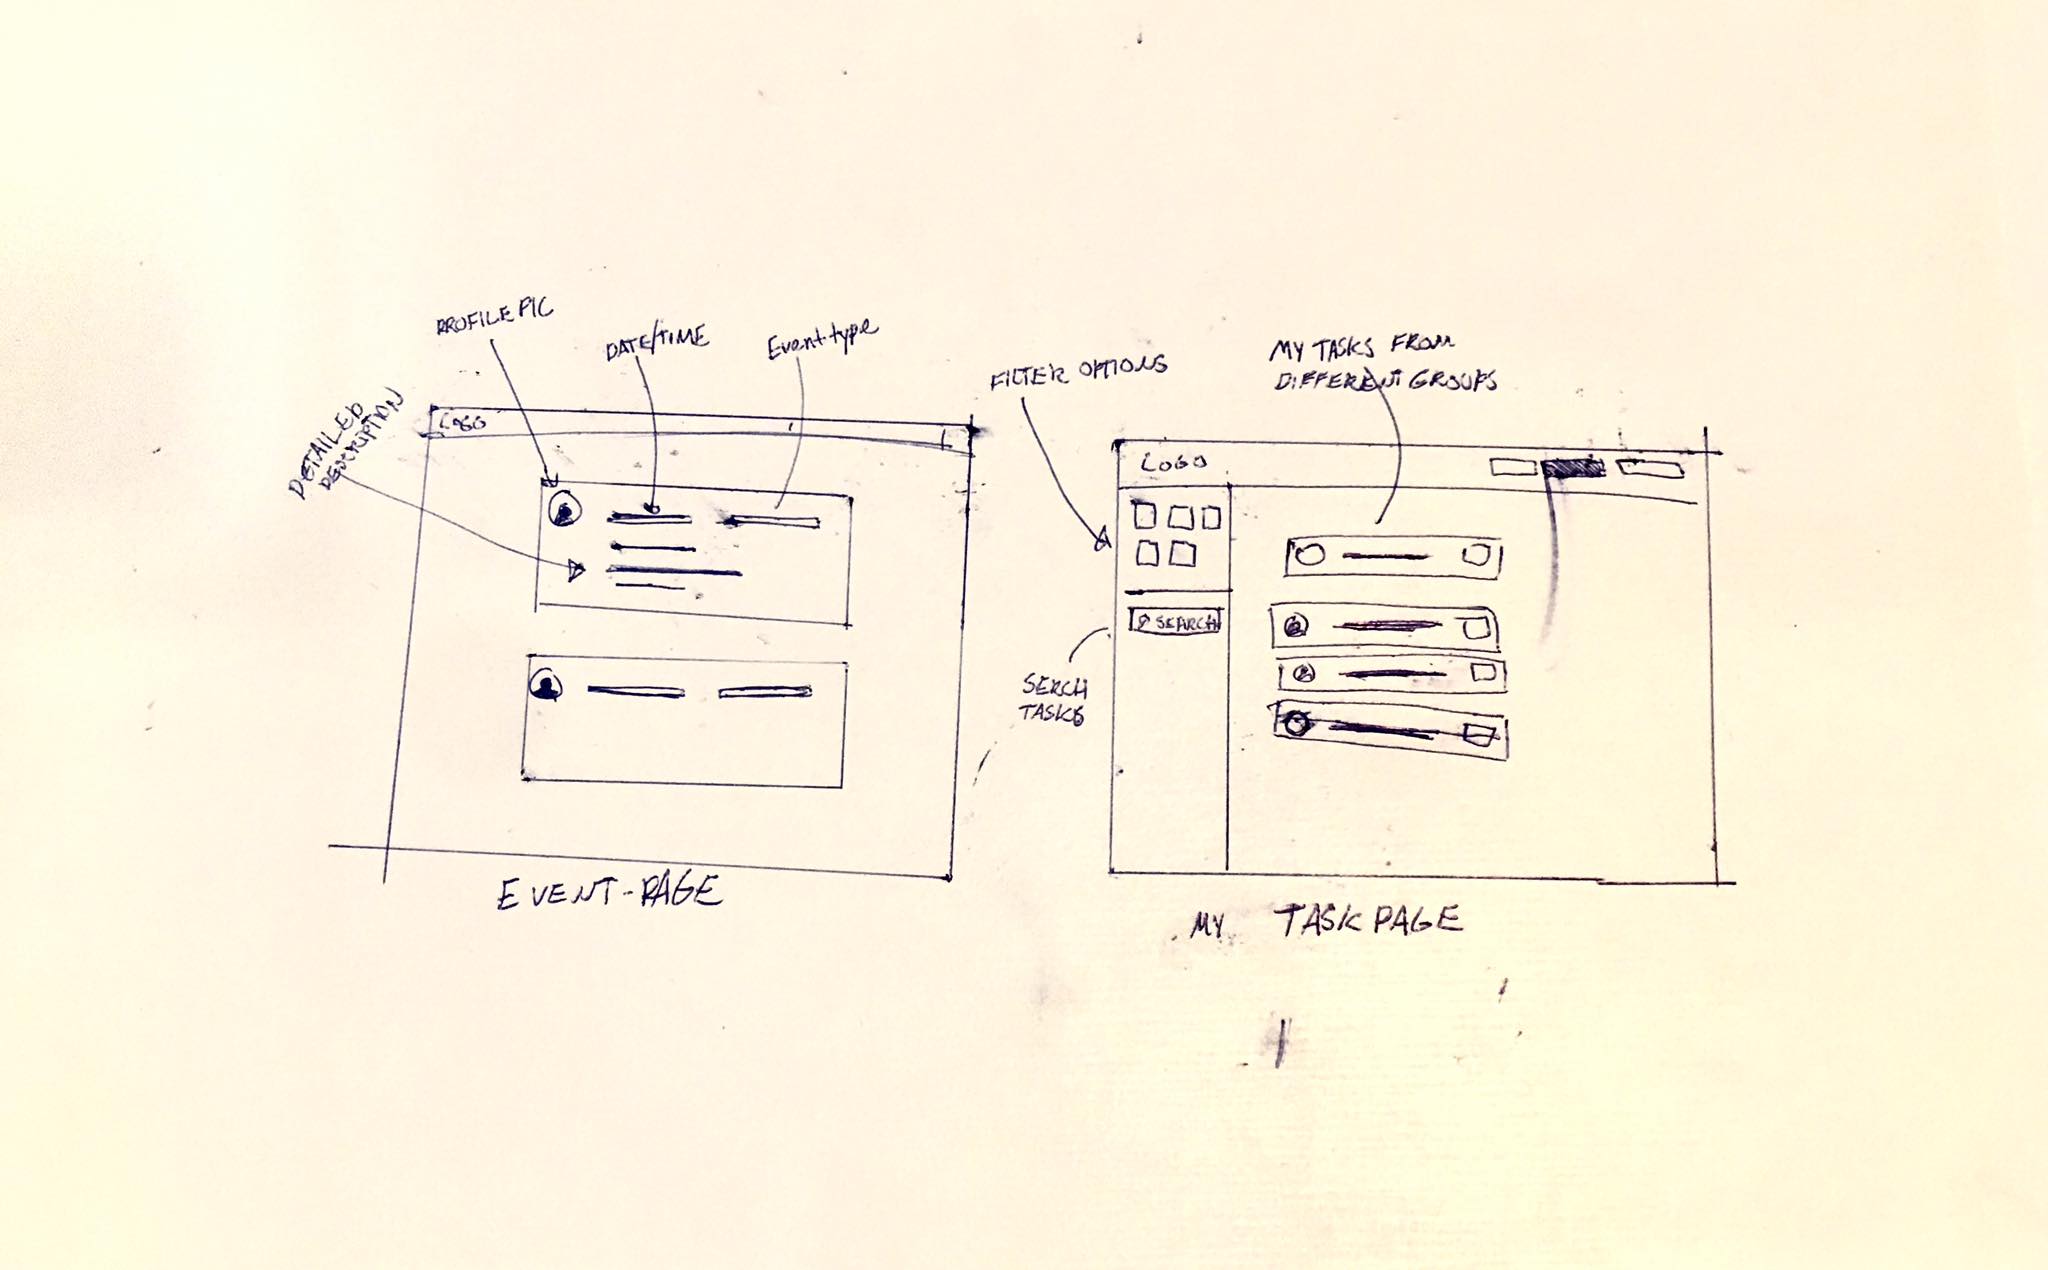 PROFILE PIC
DATE/TIME
Event type
DETAILED
DESCRIPTION
LOGO
EVENT-PAGE
FILTER OPTIONS
MY TASKS FROM
DIFFERENT GROUPS
LOGO
SEARCH
SERCH
TASKS
MY TASK PAGE